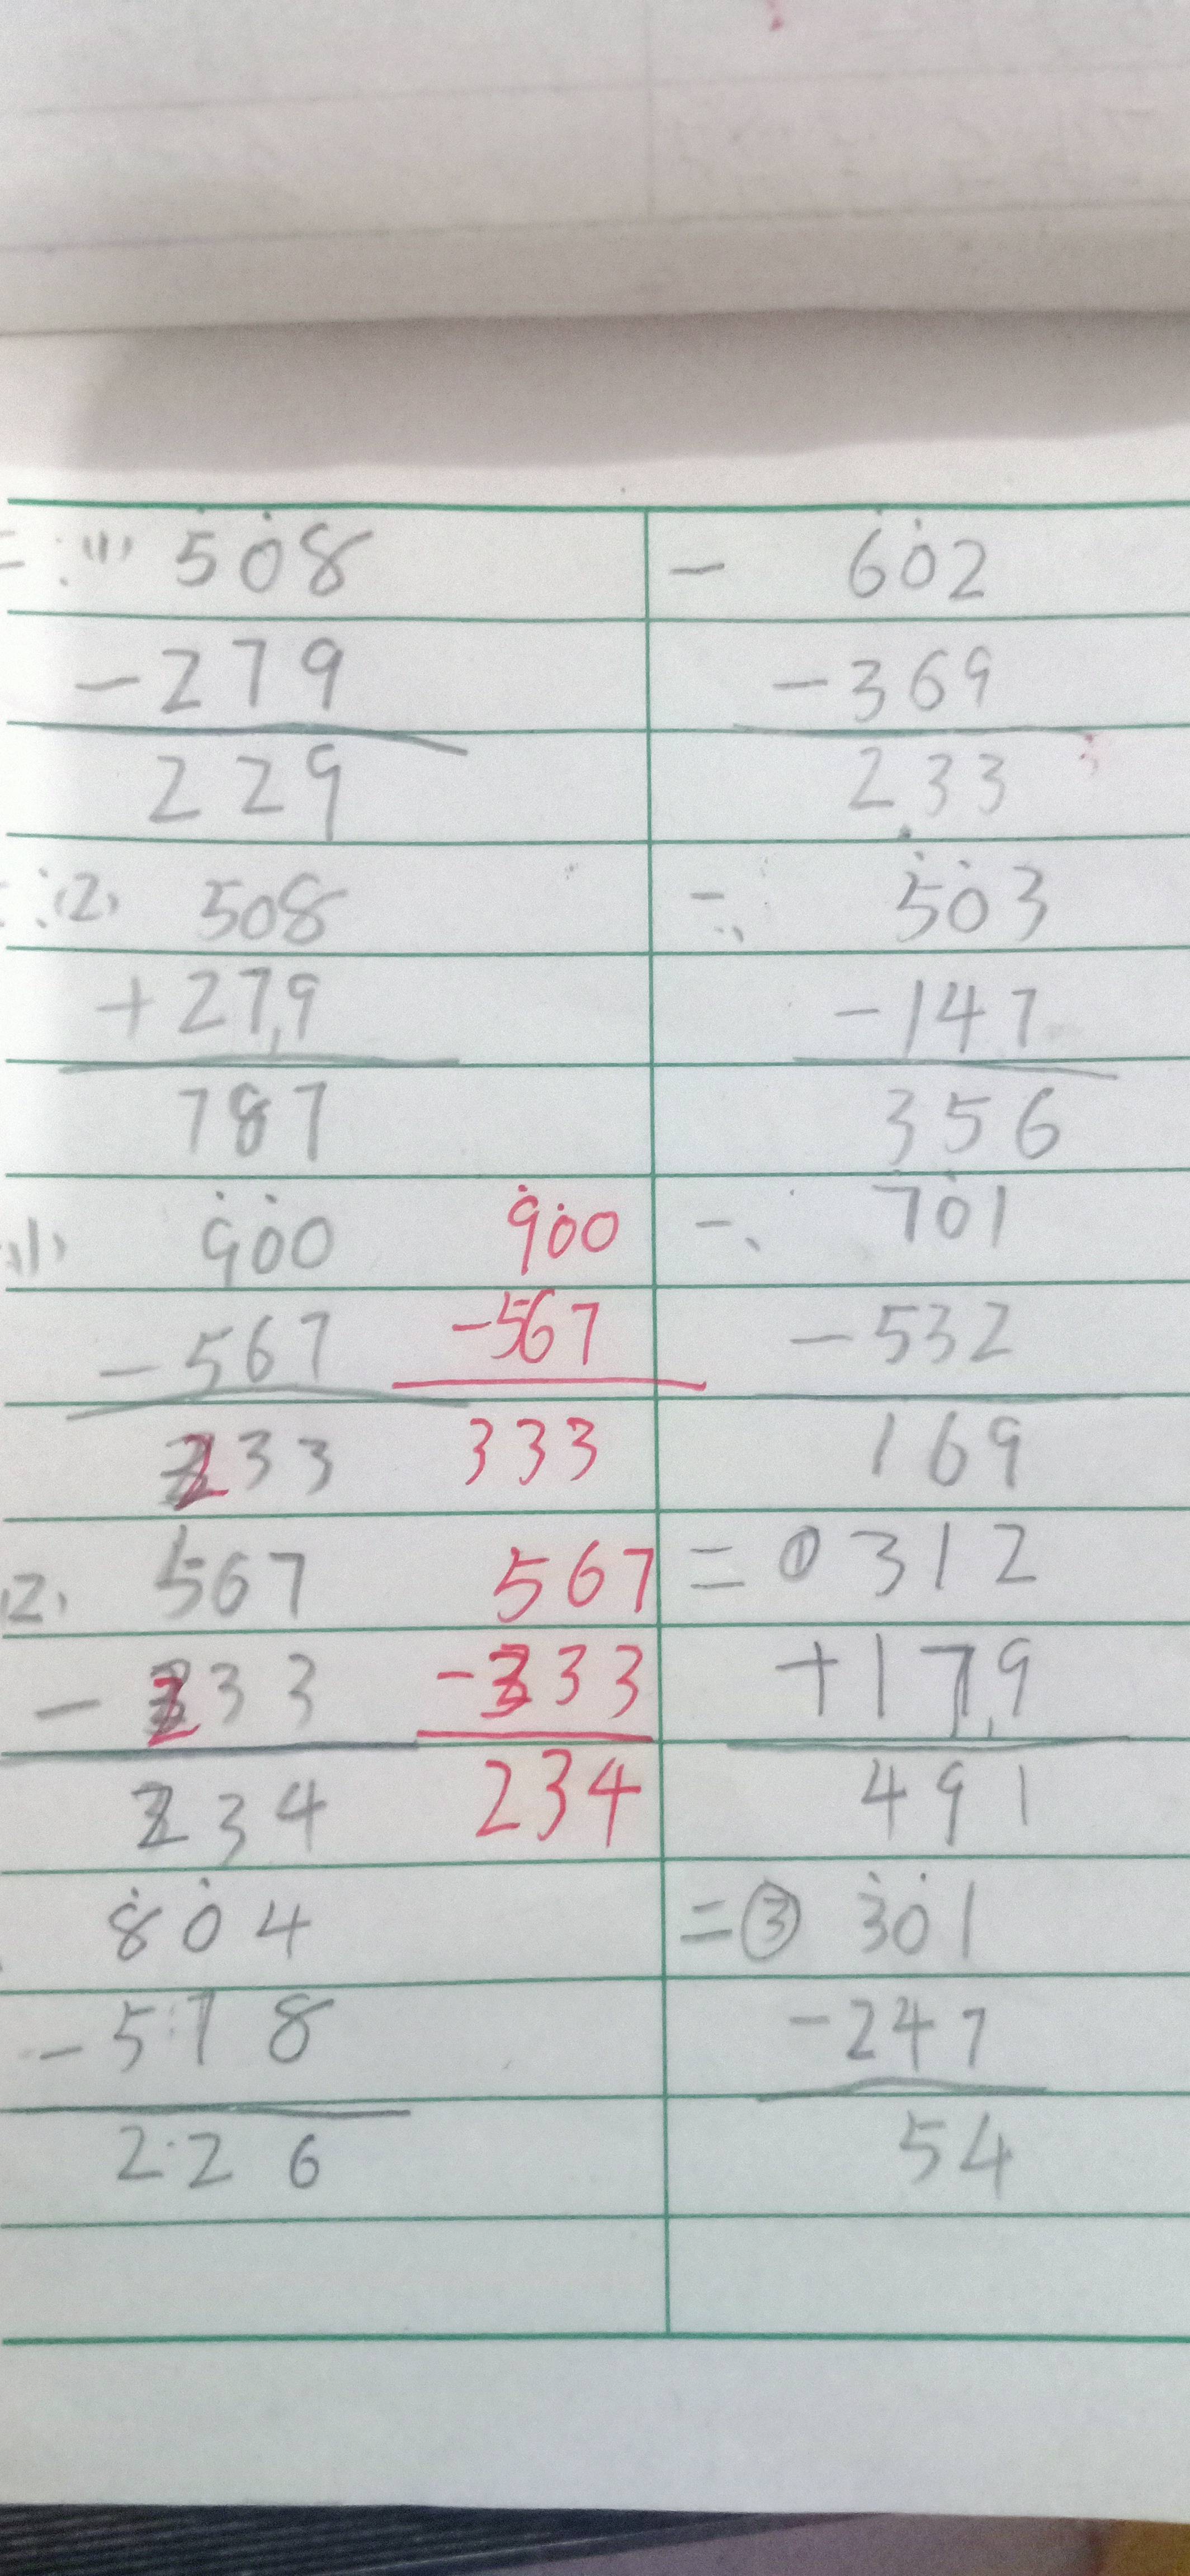 二、(1) 508
-279
229
二、(2) 508
+279
787
(1) 900 900
-567 -567
233 333
(2) 567 567
-233 -333
234 234
804
-578
226
一 602
-369
233
一、 503
-147
356
一、 701
-532
169
二 ① 312
+179
491
二 ③ 301
-247
54